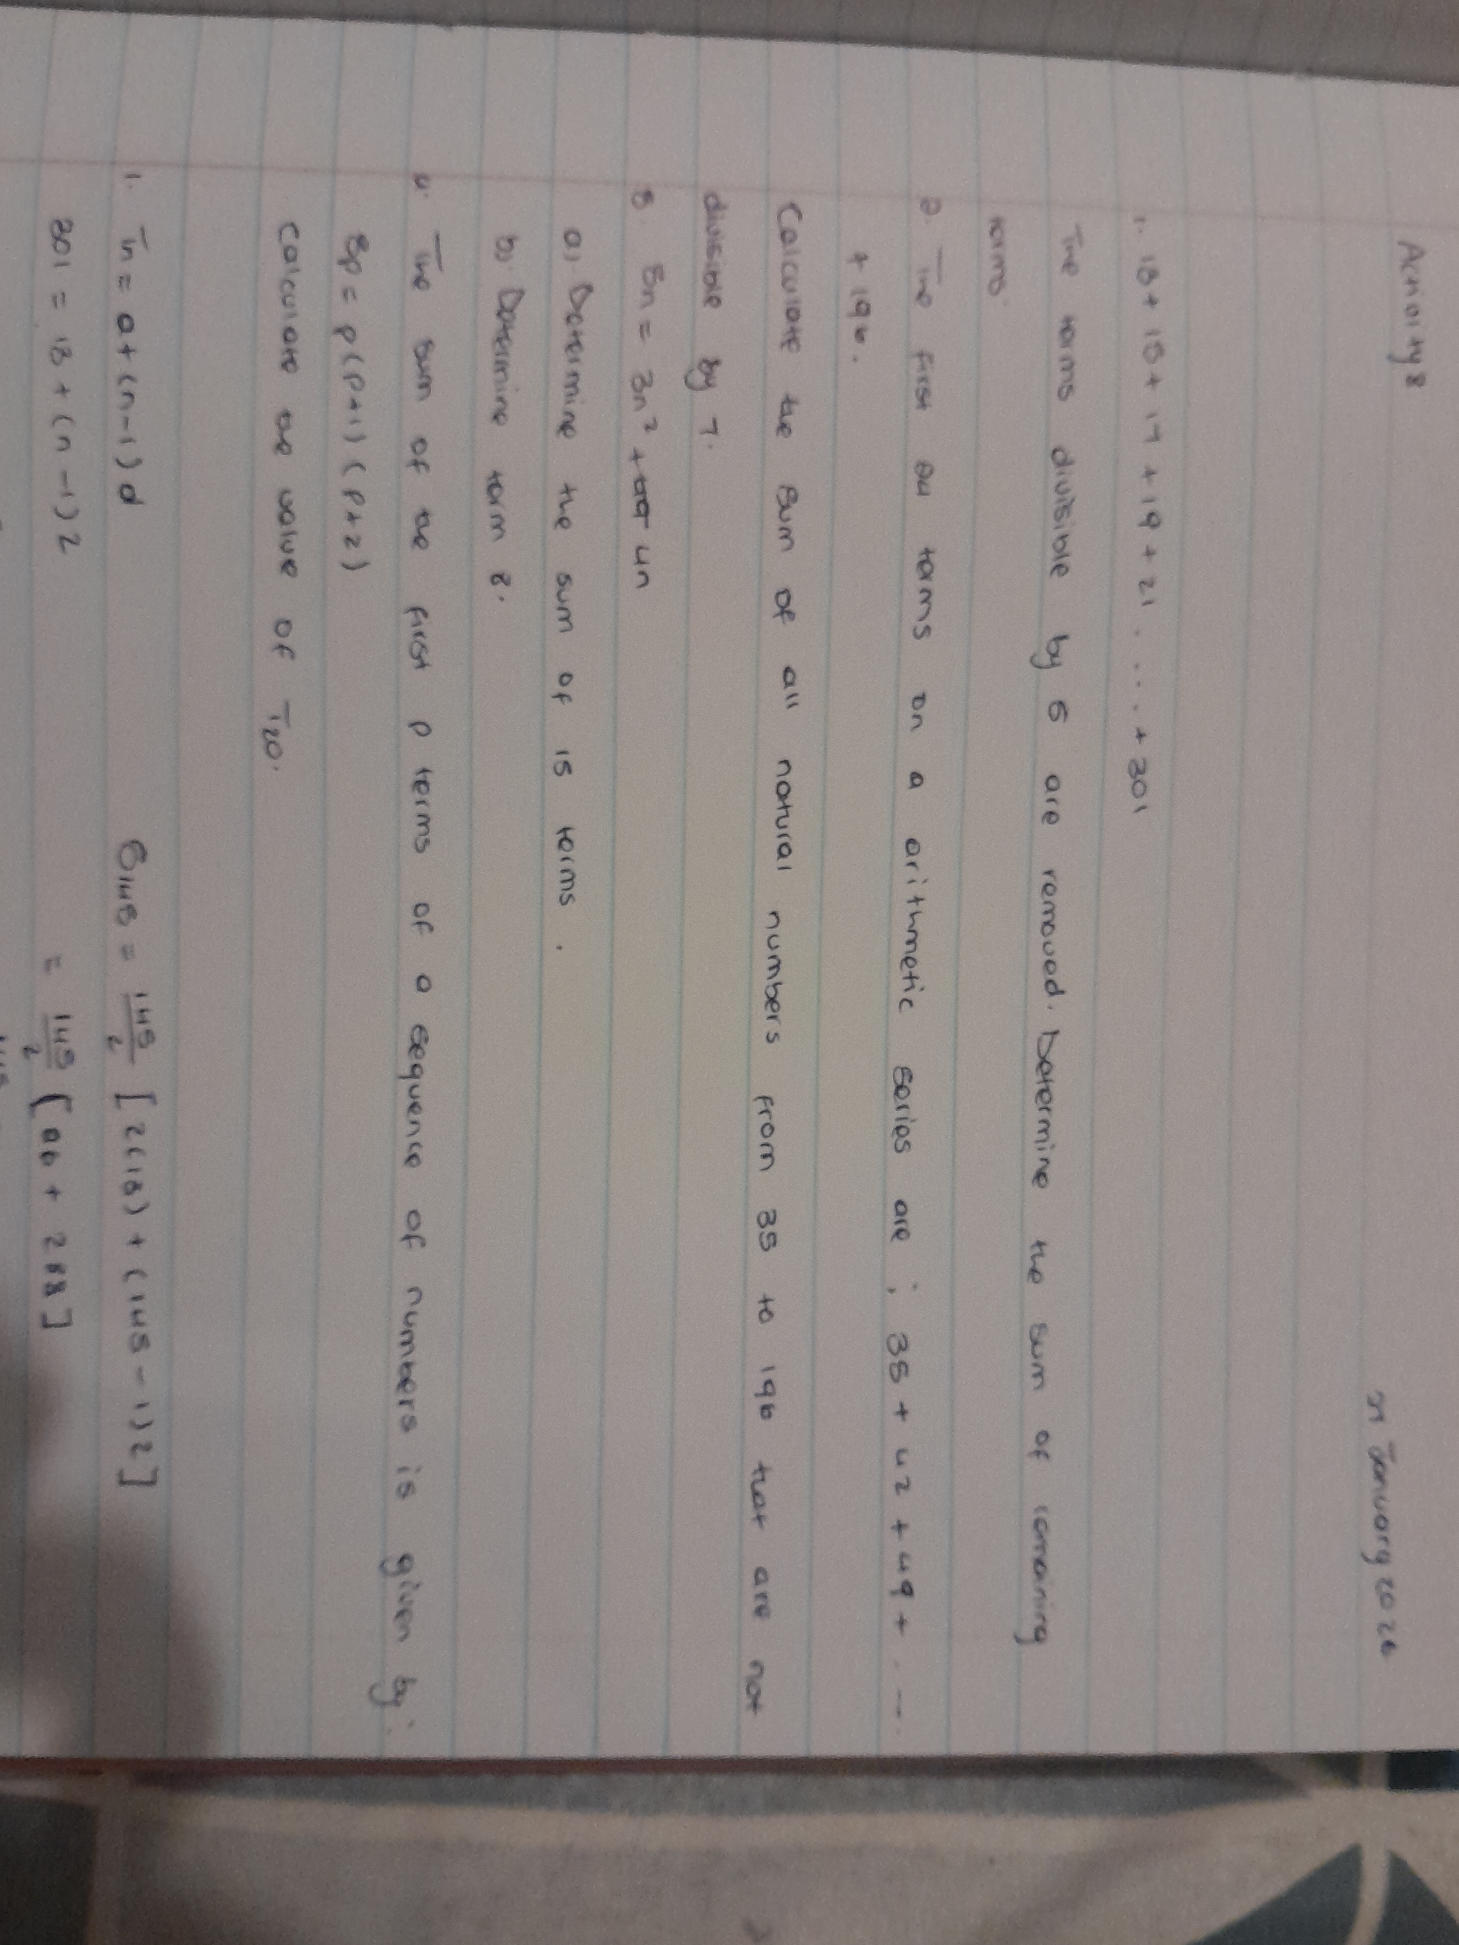 Activity 8
21 January 2026
1. 13 + 15 + 17 + 19 + 21 . . . . + 301
The terms divisible by 5 are removed. Determine the sum of remaining
terms.
2. The first 24 terms on a arithmetic series are ; 35 + 42 + 49 + . . .
+ 196.
Calculate the sum of all natural numbers from 35 to 196 that are not
divisible by 7.
3. Sn = 3n² + 4n
a). Determine the sum of 15 terms .
b). Determine term 8.
4. The sum of the first p terms of a sequence of numbers is given by:
Sp = p(p+1)(p+2)
Calculate the value of T20.
1. Tn = a+(n-1)d
S145 = 145/2 [2(13) + (145-1)2]
301 = 13 + (n-1)2
= 145/2 [26 + 288]